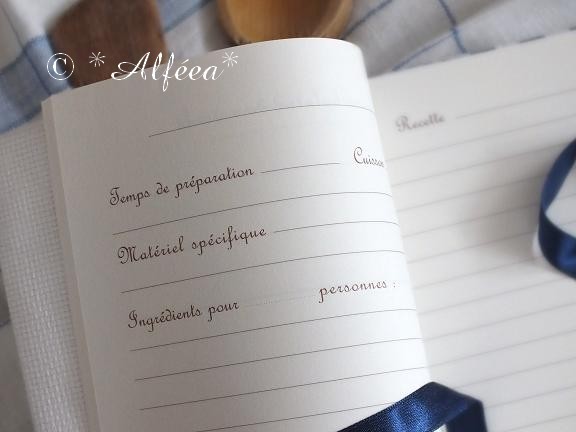 © * Alféea*
Temps de préparation Cuisson
Matériel spécifique
Ingrédients pour personnes :
Recette